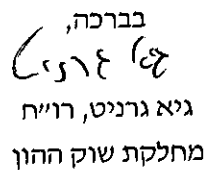 בברכה,
גיא גרניט
גיא גרניט, רו״ח
מחלקת שוק ההון